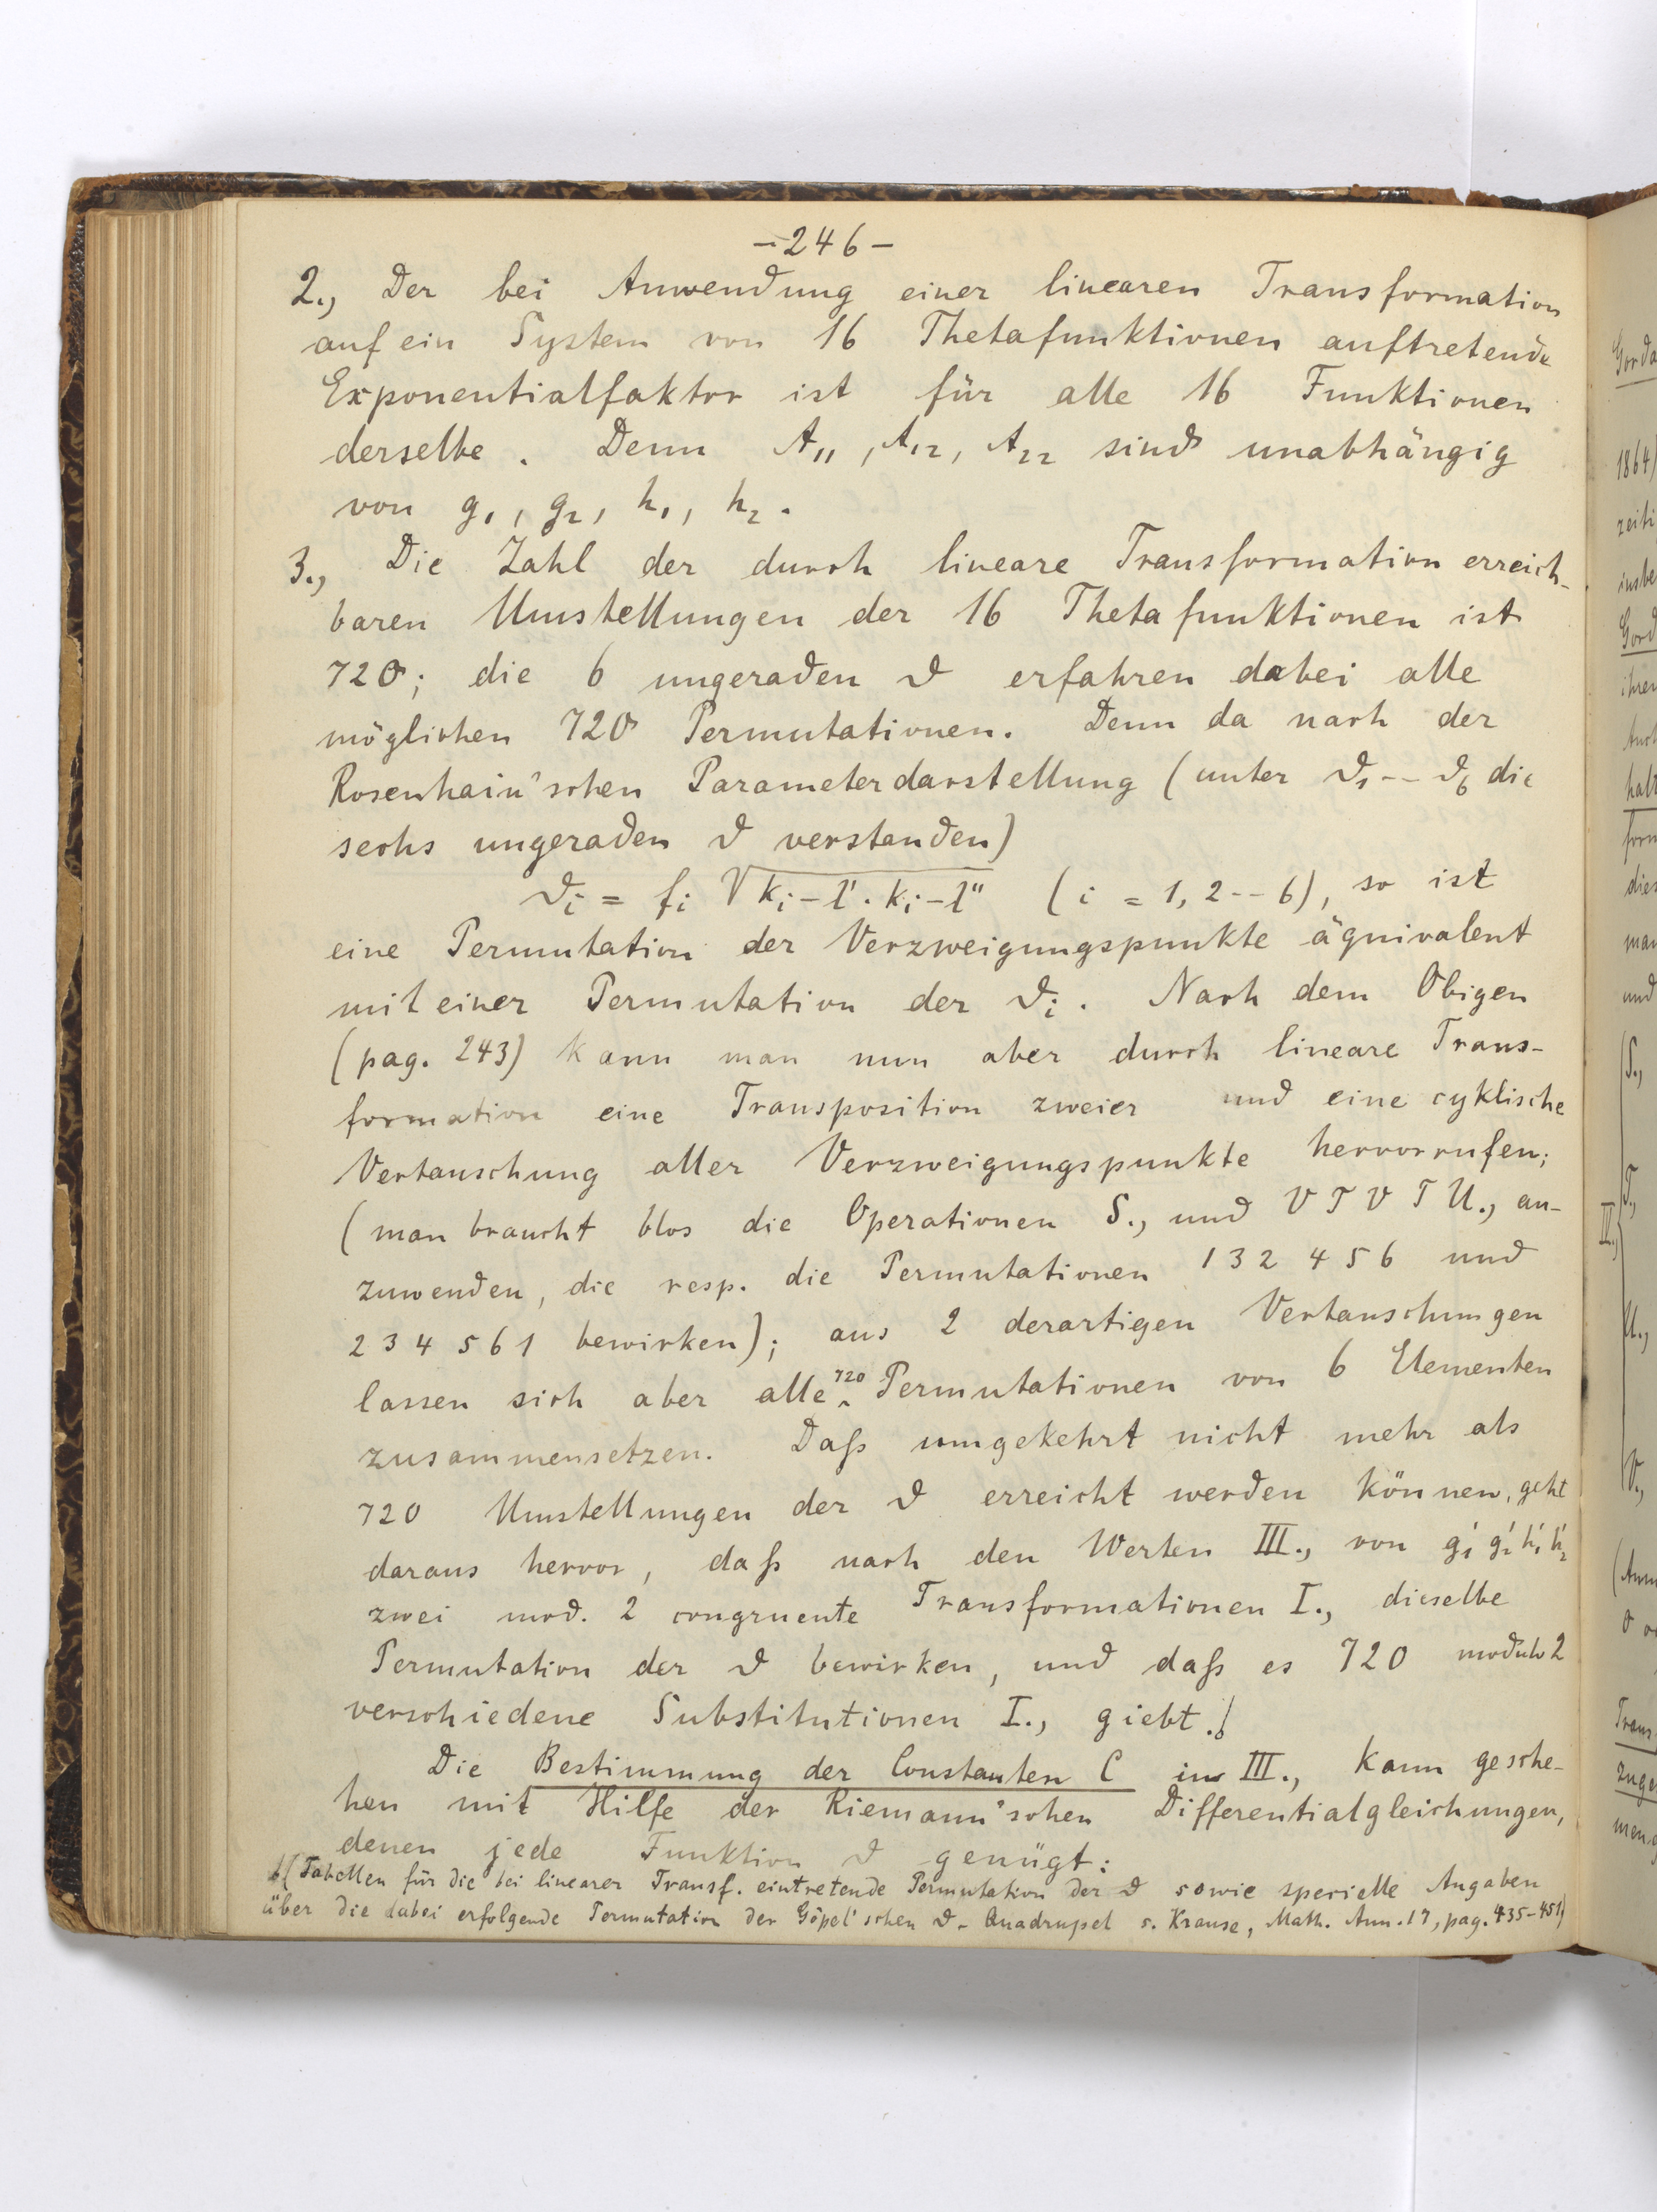 — 246 —
2., Der bei Anwendung einer linearen Transformation
auf ein System von 16 Thetafunktionen auftretende
Exponentialfaktor ist für alle 16 Funktionen
derselbe. Denn A₁₁, A₁₂, A₂₂ sind unabhängig
von g₁, g₂, h₁, h₂.
3., Die Zahl der durch lineare Transformation erreich-
baren Umstellungen der 16 Thetafunktionen ist
720; die 6 ungeraden ϑ erfahren dabei alle
möglichen 720 Permutationen. Denn da nach der
Rosenhain'schen Parameterdarstellung (unter ϑ₁ -- ϑ₆ die
sechs ungeraden ϑ verstanden)
ϑᵢ = fᵢ √kᵢ-l'. kᵢ-l'' (i = 1, 2 -- 6), so ist
eine Permutation der Verzweigungspunkte äquivalent
mit einer Permutation der ϑᵢ. Nach dem Obigen
(pag. 243) kann man nun aber durch lineare Trans-
formation eine Transposition zweier und eine cyklische
Vertauschung aller Verzweigungspunkte hervorrufen;
(man braucht blos die Operationen S., und V T V T U., an-
zuwenden, die resp. die Permutationen 1 3 2 4 5 6 und
2 3 4 5 6 1 bewirken); aus 2 derartigen Vertauschungen
lassen sich aber alle 720 Permutationen von 6 Elementen
zusammensetzen. Daß umgekehrt nicht mehr als
720 Umstellungen der ϑ erreicht werden können, geht
daraus hervor, daß nach den Werten III., von g₁' g₂' h₁' h₂'
zwei mod. 2 congruente Transformationen I., dieselbe
Permutation der ϑ bewirken, und daß es 720 modulo 2
verschiedene Substitutionen I., giebt.
Die Bestimmung der Constanten C in III., kann gesche-
hen mit Hilfe der Riemann'schen Differentialgleichungen,
denen jede Funktion ϑ genügt:
(Tabellen für die bei linearer Transf. eintretende Permutation der ϑ sowie specielle Angaben
über die dabei erfolgende Permutation der Göpel'schen ϑ-Quadrupel s. Krause, Math. Ann. 17, pag. 435-451)